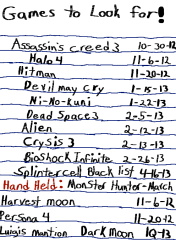 Games to Look for!
Assassin's creed 3 10-30-12
Halo 4 11-6-12
Hitman 11-20-12
Devil may cry 1-15-13
Ni-No-kuni 1-22-13
Dead Space 3 2-5-13
Alien 2-12-13
Crysis 3 2-13-13
Bioshock Infinite 2-26-13
Splintercell Black list 4-16-13
Hand Held: Monster Hunter-March
Harvest moon 11-6-12
Persona 4 11-20-12
Luigis mantion Dark Moon 1Q-13